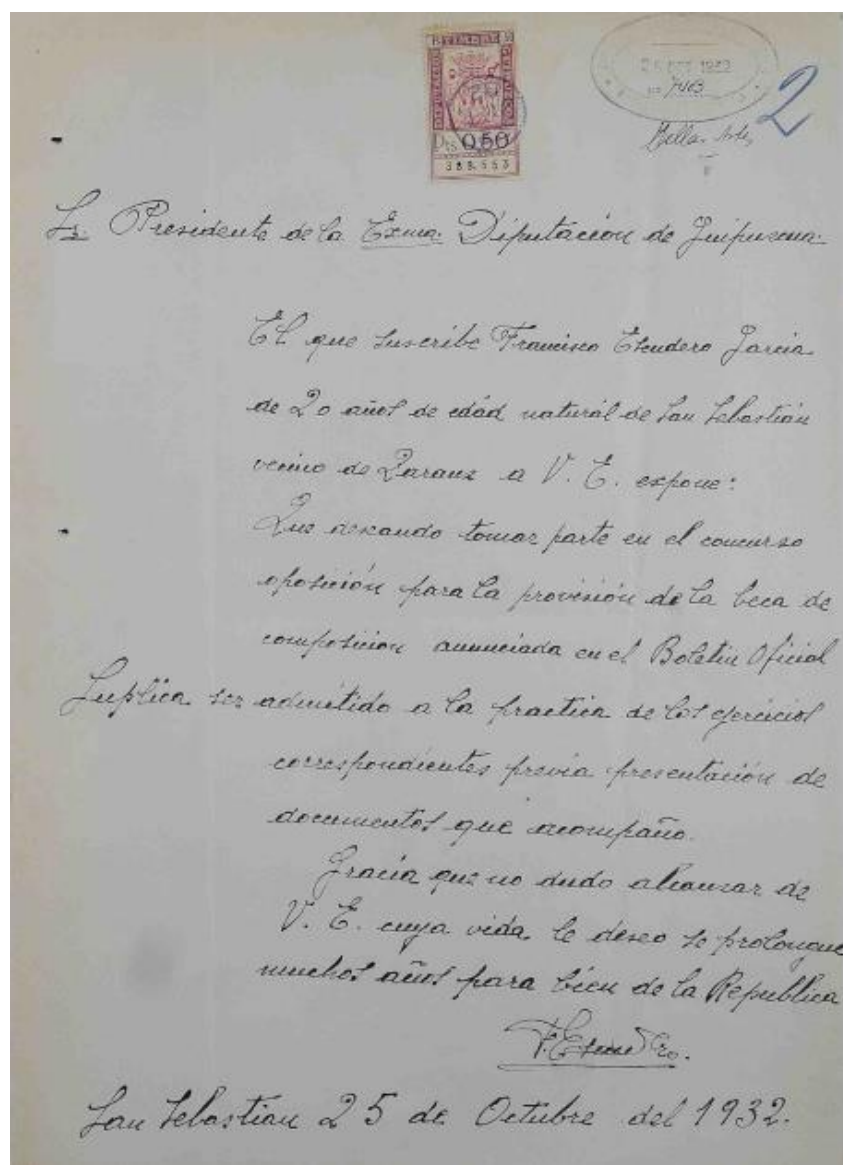 TIMBRE
Pts 0'50
25 OCT 1932
7463
2
Bellas Artes
Sr. Presidente de la Exma. Diputación de Guipuzcoa.
El que suscribe Francisco Escudero Garcia
de 20 años de edád naturál de San Sebastián
vecino de Zarauz a V. E. expone:
Que deseando tomar parte en el concurso
oposición para la provisión de la beca de
composicion anunciada en el Boletin Oficial
Suplica ser admitido a la practica de los ejercicios
correspondientes previa presentación de
documentos que acompaño.
Gracia que no dudo alcanzar de
V. E. cuya vida le deseo se prolongue
muchos años para bien de la Republica
F. Escudero.
San Sebastián 25 de Octubre del 1932.